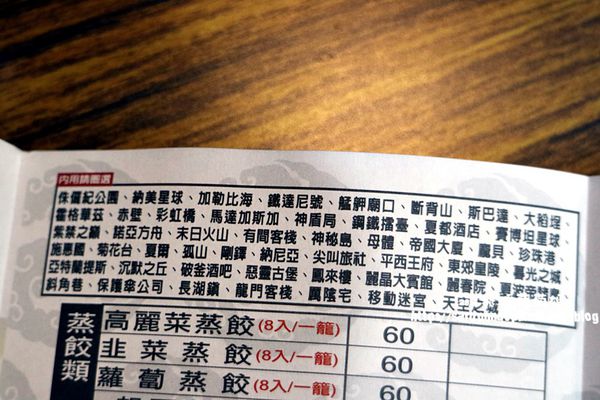 內用請圈選
侏儸紀公園、納美星球、加勒比海、鐵達尼號、艋舺廟口、斷背山、斯巴達、大稻埕、
霍格華茲、赤壁、彩虹橋、馬達加斯加、神盾局、鋼鐵擂臺、夏都酒店、賽博坦星球、
紫禁之巔、諾亞方舟、末日火山、有間客棧、神秘島、母體、帝國大廈、龐貝、珍珠港、
施惠國、菊花台、夏爾、孤山、剛鐸、納尼亞、尖叫旅社、平西王府、東郊皇陵、暮光之城
亞特蘭提斯、沉默之丘、破釜酒吧、惡靈古堡、鳳來樓、麗晶大賓館、麗春院、夏洛
斜角巷、保護傘公司、長湖鎮、龍門客棧、厲陰宅、移動迷宮、天空之城
蒸餃類
高麗菜蒸餃(8入/一籠) 60
韭菜蒸餃(8入/一籠) 60
蘿蔔蒸餃(8入/一籠) 60